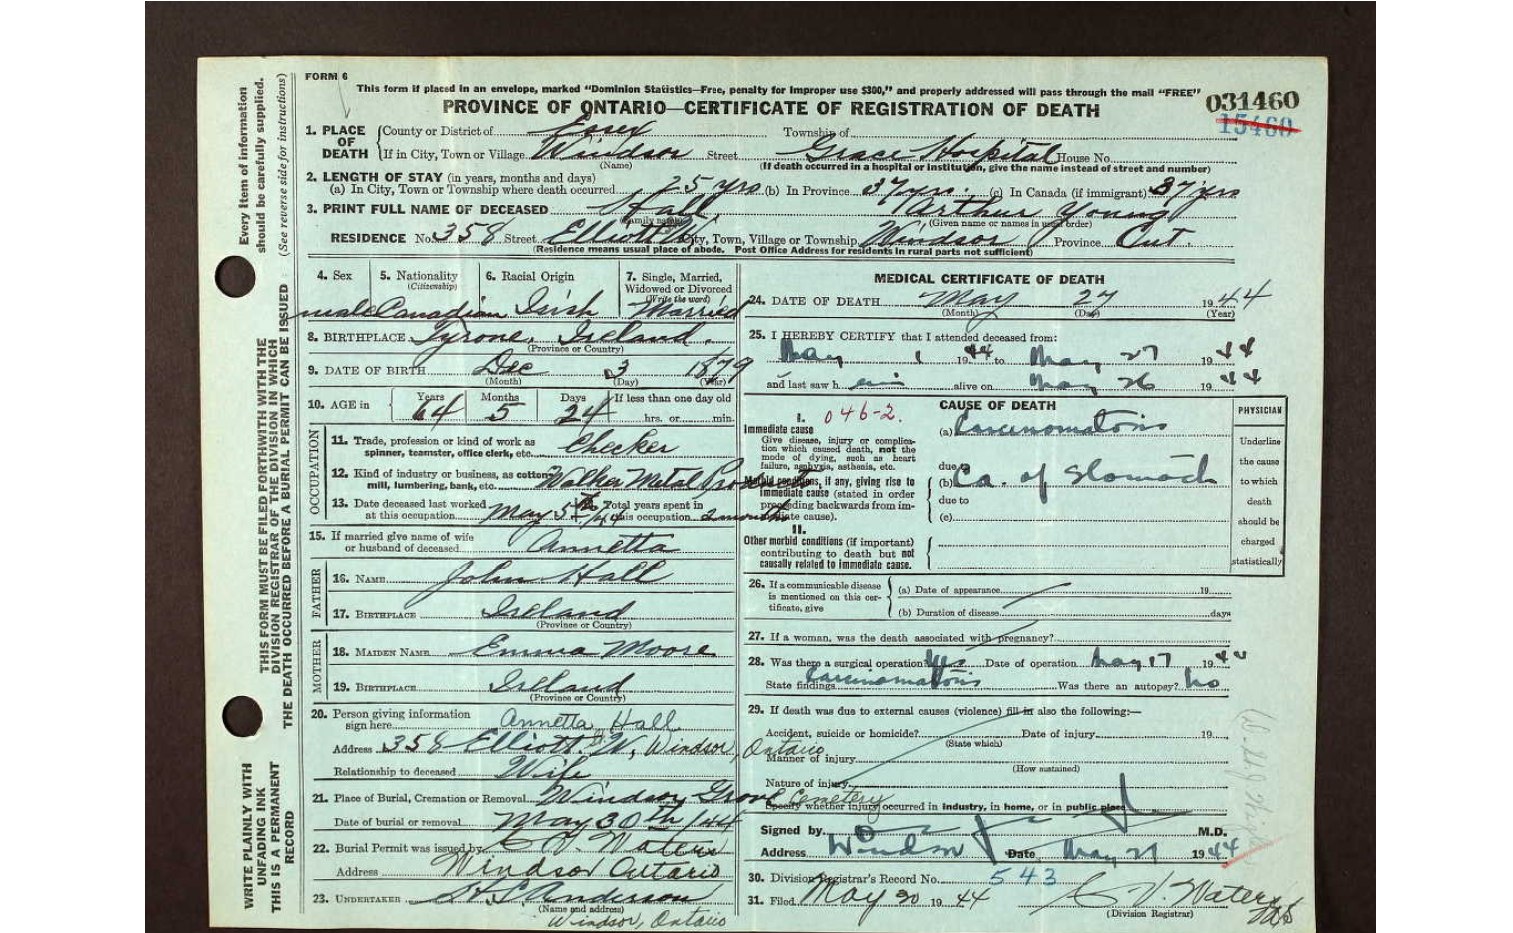 FORM 6
This form if placed in an envelope, marked "Dominion Statistics—Free, penalty for improper use $300," and properly addressed will pass through the mail "FREE"
PROVINCE OF ONTARIO—CERTIFICATE OF REGISTRATION OF DEATH
031460
15460
1. PLACE OF DEATH
County or District of Essex Township of
If in City, Town or Village Windsor Street Grace Hospital House No.
(Name) (If death occurred in a hospital or institution, give the name instead of street and number)
2. LENGTH OF STAY (in years, months and days)
(a) In City, Town or Township where death occurred 25 yrs (b) In Province 37 yrs. (c) In Canada (if immigrant) 37 yrs
3. PRINT FULL NAME OF DECEASED Hall, Arthur Young
(Family name) (Given name or names in usual order)
RESIDENCE No. 358 Street Elliott W. City, Town, Village or Township Windsor Province Ont.
(Residence means usual place of abode. Post Office Address for residents in rural parts not sufficient)
4. Sex male
5. Nationality (Citizenship) Canadian
6. Racial Origin Irish
7. Single, Married, Widowed or Divorced (Write the word) Married
8. BIRTHPLACE Tyrone, Ireland.
(Province or Country)
9. DATE OF BIRTH Dec 3 1879
(Month) (Day) (Year)
10. AGE in Years 64 Months 5 Days 24 If less than one day old hrs. or min.
OCCUPATION
11. Trade, profession or kind of work as spinner, teamster, office clerk, etc. Checker
12. Kind of industry or business, as cotton mill, lumbering, bank, etc. Walker Metal Products
13. Date deceased last worked at this occupation May 5th/44 Total years spent in this occupation 2 months
15. If married give name of wife or husband of deceased Annetta
FATHER
16. NAME John Hall
17. BIRTHPLACE Ireland
(Province or Country)
MOTHER
18. MAIDEN NAME Emma Moore
19. BIRTHPLACE Ireland
(Province or Country)
20. Person giving information sign here Annetta Hall
Address 358 Elliott W, Windsor, Ontario
Relationship to deceased Wife
21. Place of Burial, Cremation or Removal Windsor Grove Cemetery
Date of burial or removal May 30th/44
22. Burial Permit was issued by C V. Waters
Address Windsor Ontario
23. UNDERTAKER Anderson
(Name and address)
Windsor, Ontario
MEDICAL CERTIFICATE OF DEATH
24. DATE OF DEATH May 27 1944
(Month) (Day) (Year)
25. I HEREBY CERTIFY that I attended deceased from:
May 1 1944 to May 27 1944
and last saw him alive on May 26 1944
CAUSE OF DEATH
I. 046-2.
Immediate cause
Give disease, injury or complication which caused death, not the mode of dying, such as heart failure, asphyxia, asthenia, etc.
(a) Carcinomatosis
due to
Morbid conditions, if any, giving rise to immediate cause (stated in order preceding backwards from immediate cause).
(b) Ca. of Stomach
due to
(c)
II.
Other morbid conditions (if important) contributing to death but not causally related to immediate cause.
PHYSICIAN
Underline the cause to which death should be charged statistically
26. If a communicable disease is mentioned on this certificate, give
(a) Date of appearance 19
(b) Duration of disease days
27. If a woman, was the death associated with pregnancy?
28. Was there a surgical operation? Yes Date of operation May 17 1944
State findings Carcinomatosis Was there an autopsy? No
29. If death was due to external causes (violence) fill in also the following:—
Accident, suicide or homicide? Date of injury 19
(State which)
Manner of injury
(How sustained)
Nature of injury
Specify whether injury occurred in industry, in home, or in public place
Signed by M.D.
Address Windsor Date May 27 1944
30. Division Registrar's Record No. 543
31. Filed May 30 1944 C V. Waters
(Division Registrar)
Every Item of information should be carefully supplied.
(See reverse side for instructions)
THIS FORM MUST BE FILED FORTHWITH WITH THE DIVISION REGISTRAR OF THE DIVISION IN WHICH THE DEATH OCCURRED BEFORE A BURIAL PERMIT CAN BE ISSUED
WRITE PLAINLY WITH UNFADING INK
THIS IS A PERMANENT RECORD